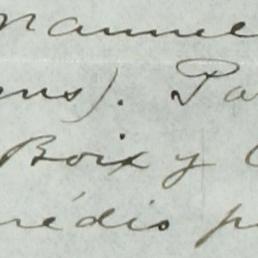 Manuel
ns). Pa
Boix y
rédis p